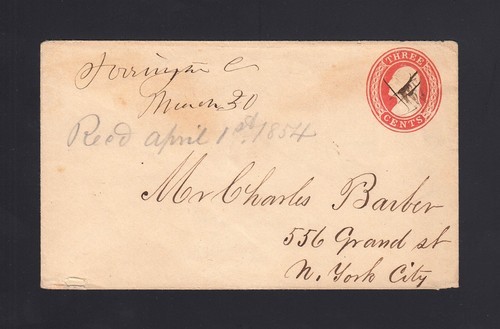 Torrington C
March 30
THREE
CENTS
Recd April 1st. 1854
Mr Charles Barber
556 Grand st
N. York City